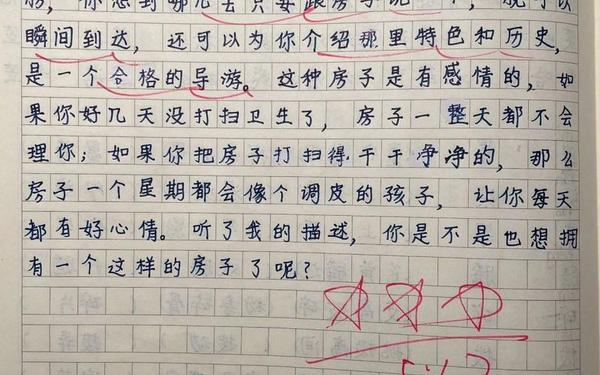 房，你想到哪儿去只要跟房子说一下，就可以
瞬间到达，还可以为你介绍那里特色和历史，
是一个合格的导游。这种房子是有感情的，如
果你好几天没打扫卫生了，房子一整天都不会
理你；如果你把房子打扫得干干净净的，那么
房子一个星期都会像个调皮的孩子，让你每天
都有好心情。听了我的描述，你是不是也想拥
有一个这样的房子了呢？